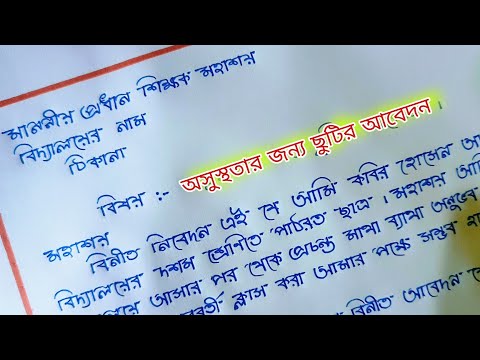 মাননীয় প্রধান শিক্ষক মহাশয়
বিদ্যালয়ের নাম
ঠিকানা
বিষয় :- অসুস্থতার জন্য ছুটির আবেদন।
মহাশয়
বিনীত নিবেদন এই যে আমি কবির হোসেন
বিদ্যালয়ের দশম শ্রেণিতে পাঠরত ছাত্র। মহাশয়
আসার পর থেকে প্রচন্ড মাথা ব্যাথা অনুভব
ক্লাস করা আমার পক্ষে সম্ভব
বিনীত আবেদন